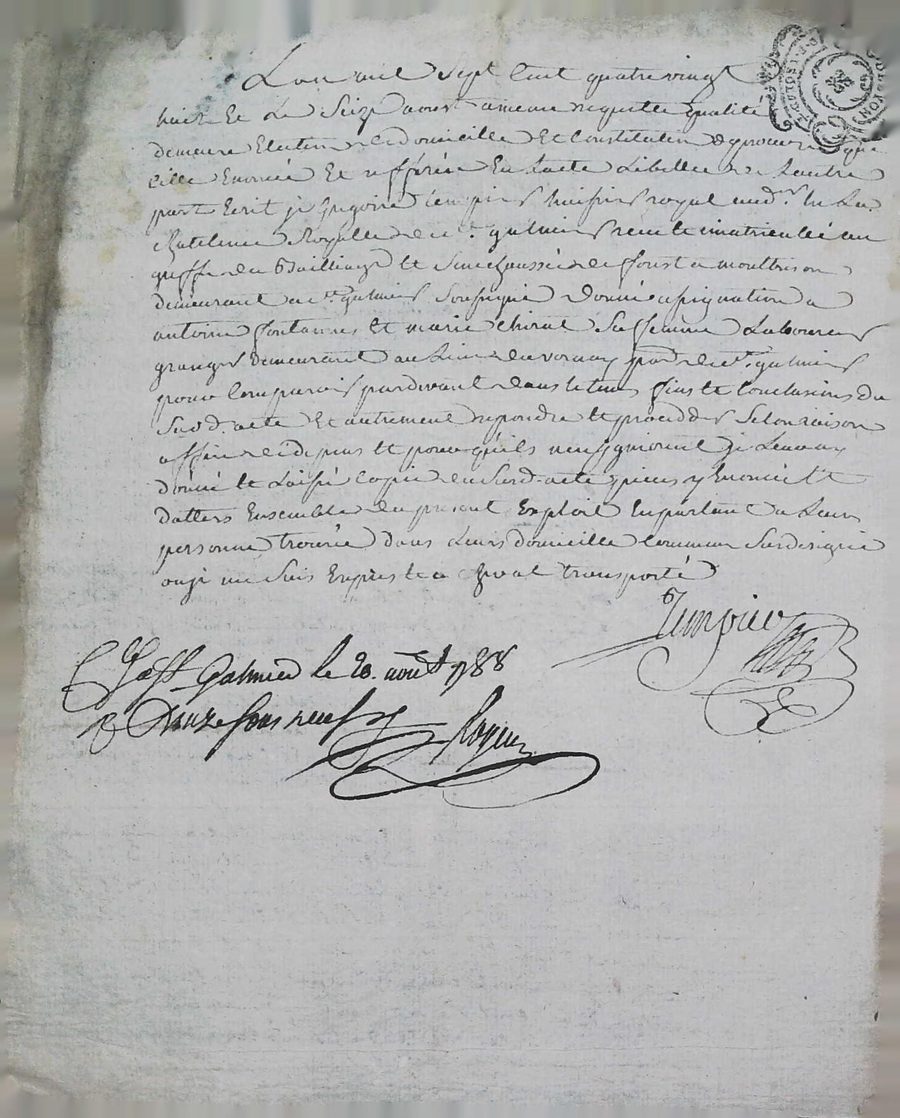 L'an mil sept Cent quatre vingt
huit Et Le Seize aoust a meme requette qualité
demeure Election de domicille Et Constitution de procureur que
celle Enoncée Et refferée En l'acte Libellé de L'autre
part Ecrit je Gregoire Tempier huissier royal aud. en La
Chatelenie Royalle de st. galmier reçu et imatriculé au
greffe du Bailliage et Senechaussée de forest a montbrison
demeurant a st. galmier Soussigné donné assignation a
antoine fontannes et marie chirat Sa femme Laboureur
granger demeurant au Lieu du vernay psse de st. galmier
pour Comparoir pardevant dans le tems fins et Conclusions du
Susd. acte Et autrement repondre et proceder Selon raison
affin de depens et pour qu'ils n'en ignorent je Leur ay
donné et Laissé Copie du Susd. acte pieces y Enoncé Et
dattes Ensemble du present Exploit En parlant a Leur
personne trouvée dans Leurs domicille Commun Susdesigné
ou je me Suis Exprès et a cheval transporté
Tempier
C. a st. Galmier le 20. aoust 1788
R. Douze sous neuf